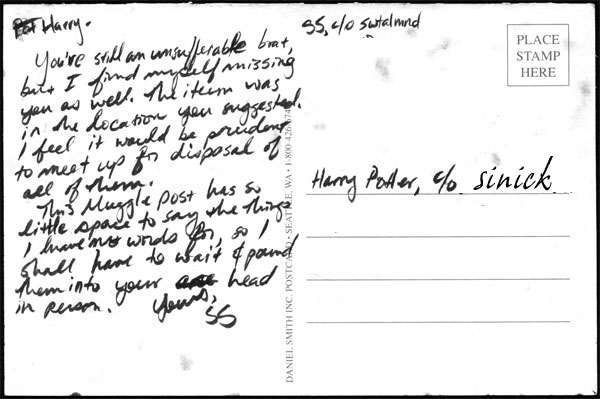 Harry.
You're still an unsufferable brat,
but I find myself missing
you as well. The item was
in the location you suggested.
I feel it would be prudent
to meet up for disposal of
all of them.
This Muggle Post has so
little space to say the things
I have no words for, so I
shall have to wait & pound
them into your head
in person. Yours,
SS
SS, c/o swtalmnd
PLACE
STAMP
HERE
Harry Potter, c/o sinick
DANIEL SMITH INC. POSTCARD • SEATTLE, WA • 1-800-426-6740